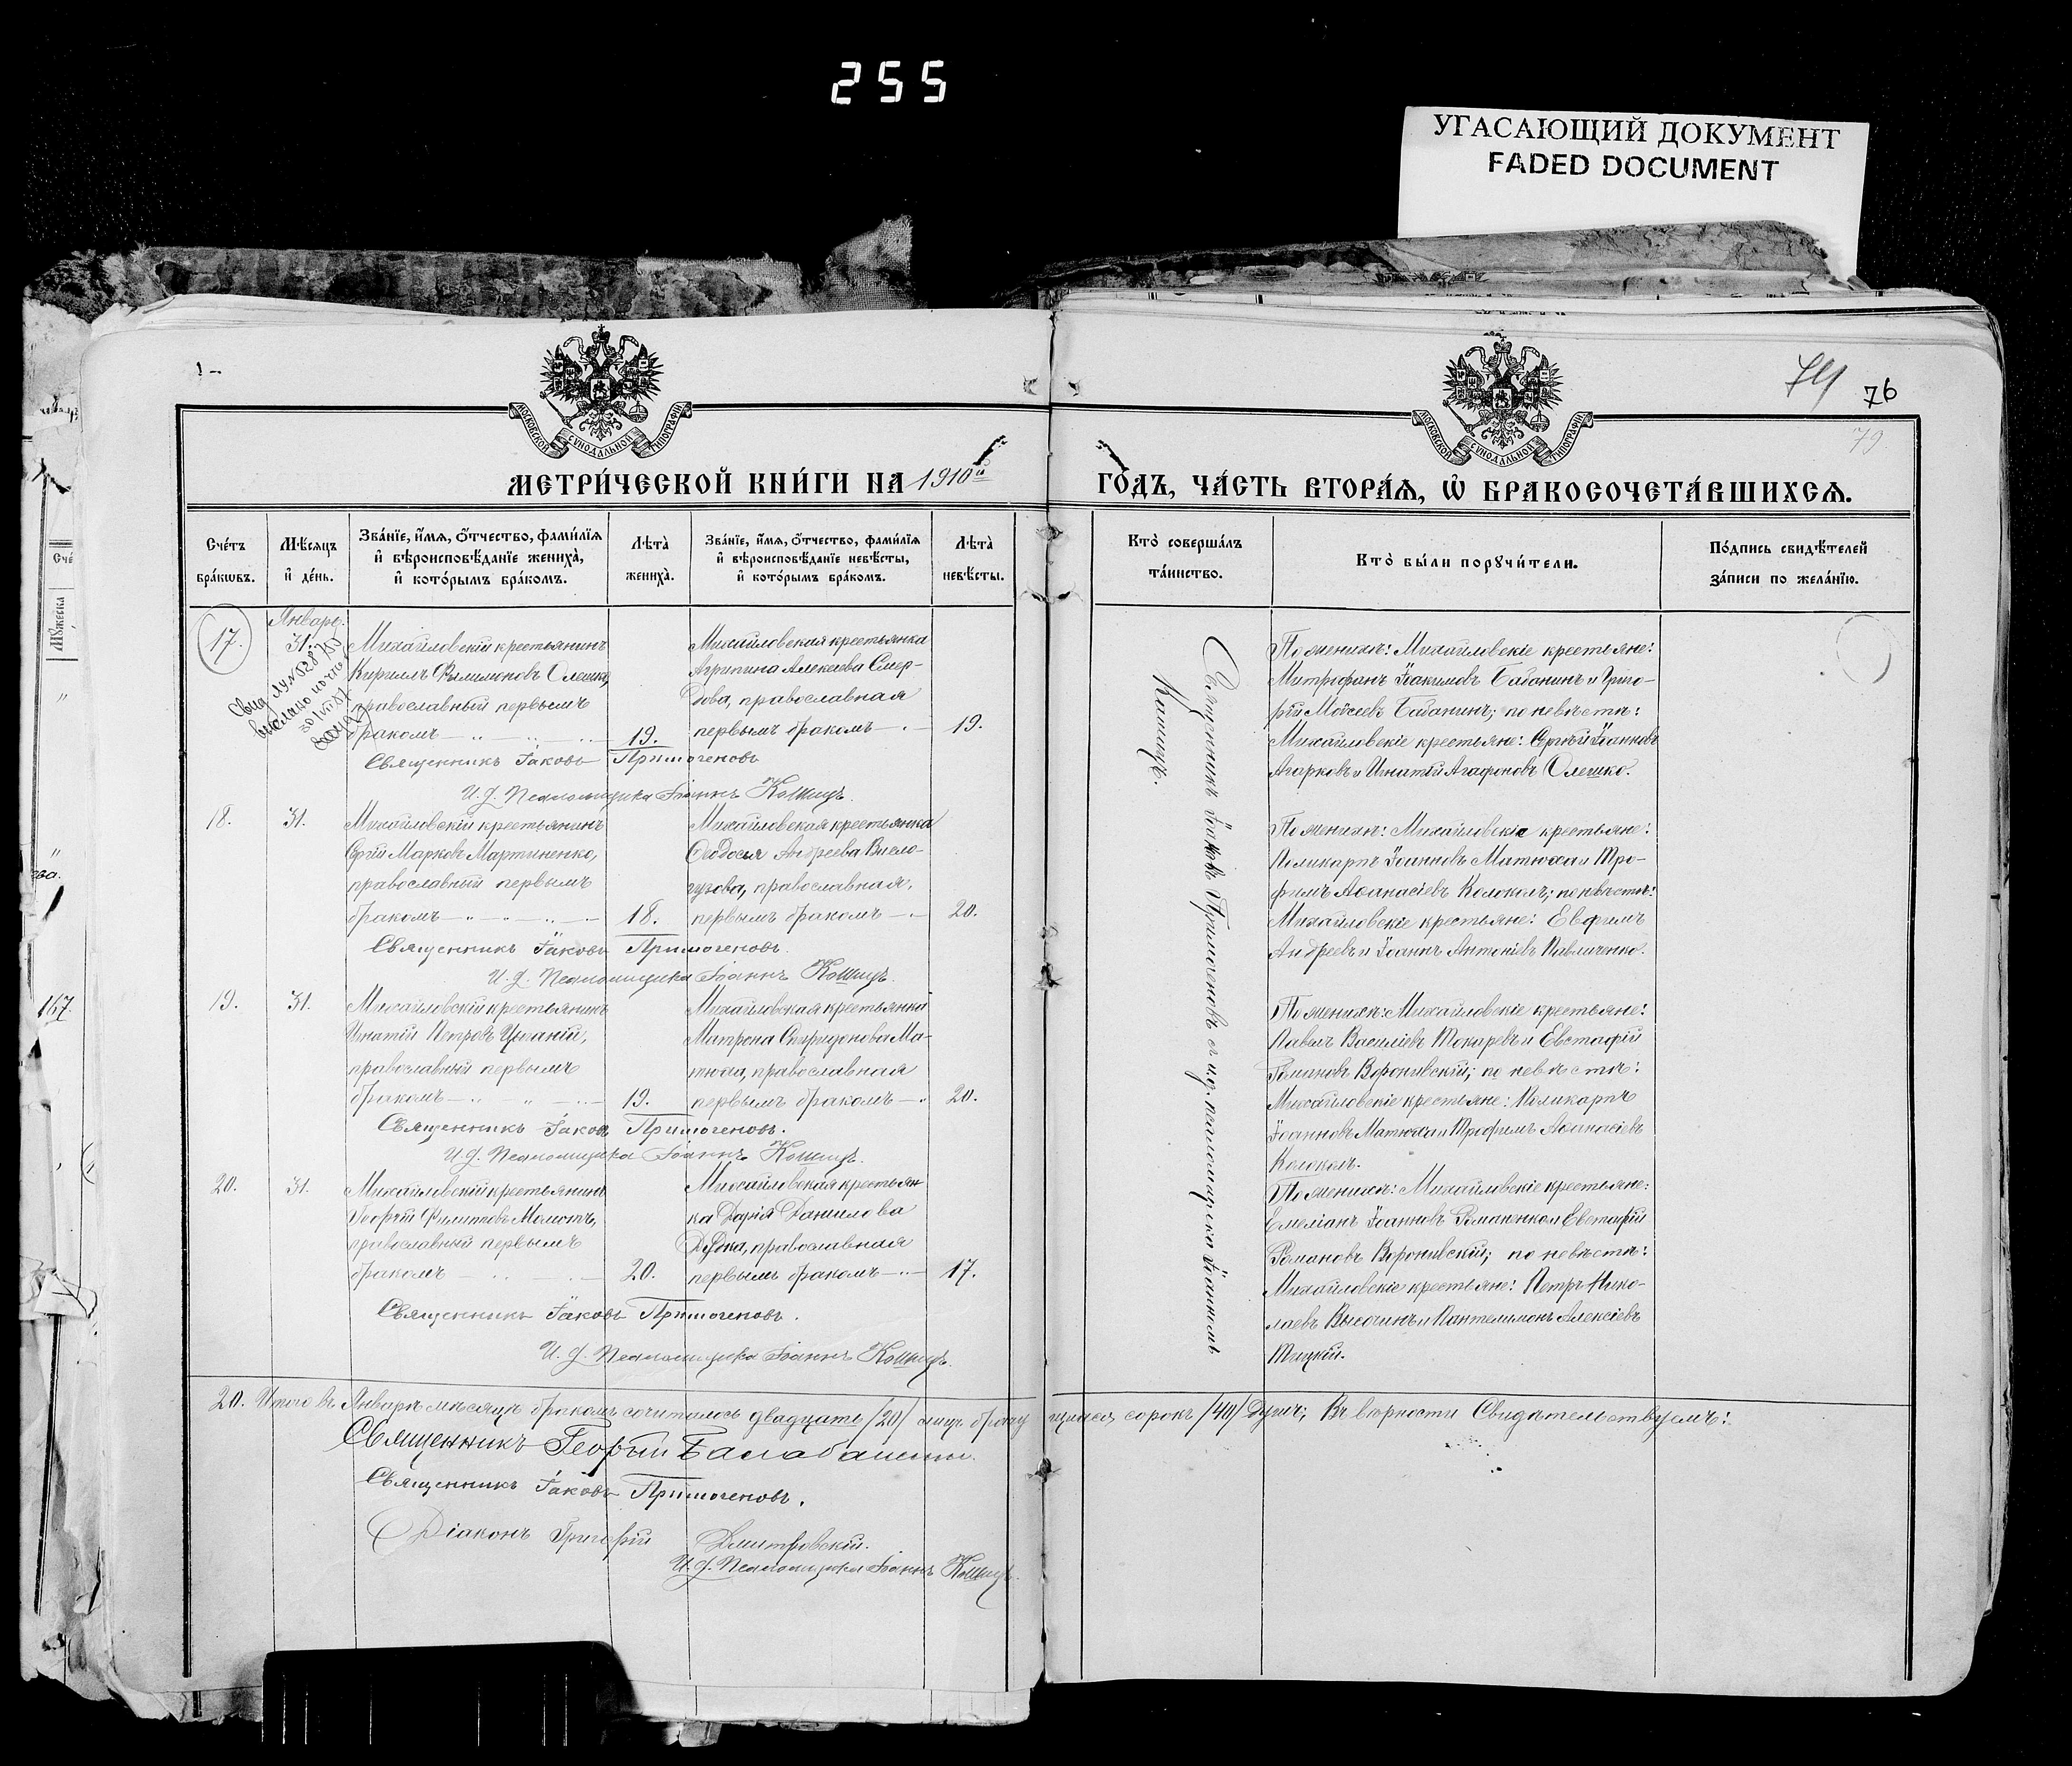 255
УГАСАЮЩИЙ ДОКУМЕНТ
FADED DOCUMENT
74
76
79
МОСКОВСКОЙ СѴНОДАЛЬНОЙ ТИПОГРАФІИ
МОСКОВСКОЙ СѴНОДАЛЬНОЙ ТИПОГРАФІИ
МЕТРИ́ЧЕСКОЙ КНИ́ГИ НА 1910й ГО́ДЪ, ЧА́СТЬ ВТОРА́Ѧ, Ѡ҆ БРАКОСОЧЕТА́ВШИХСѦ.
Сче́тъ бра́кѡвъ.
Мѣ́сѧцъ и҆ де́нь.
Зва́нїе, и҆́мѧ, о҆́тчество, фами́лїѧ и҆ вѣроисповѣ́данїе жениха̀, и҆ кото́рымъ бра́комъ.
Лѣта̀ жениха̀.
Зва́нїе, и҆́мѧ, о҆́тчество, фами́лїѧ и҆ вѣроисповѣ́данїе невѣ́сты, и҆ кото́рымъ бра́комъ.
Лѣта̀ невѣ́сты.
Кто̀ соверша́лъ та́инство.
Кто̀ бы́ли порꙋчи́тели.
По́дпись свидѣ́телей за́писи по жела́нїю.
17.
Январь.
31.
Михайловскій крестьянинъ
Кириллъ Филимоновъ Олешко,
православный первымъ
бракомъ
19.
Михайловская крестьянка
Агрипина Алексеева Смер-
дова, православная
первымъ бракомъ
19.
Священникъ Іаковъ Примогеновъ
И. д. Псаломщика Іоаннъ Кошицъ.
Священникъ Іаковъ Примогеновъ съ и.д. псаломщика Іоанномъ
Кошицъ.
По женихѣ: Михайловскіе крестьяне:
Митрофанъ Іоакимовъ Бабанинъ и Григо-
рій Моѵсеевъ Бабанинъ; по невѣстѣ:
Михайловскіе крестьяне: Сергѣй Іоанновъ
Агарковъ и Игнатій Агафоновъ Олешко.
18.
31.
Михайловскій крестьянинъ
Сергій Марковъ Мартиненко,
православный первымъ
бракомъ
18.
Михайловская крестьянка
Ѳеодосія Андреева Висло-
гузова, православная,
первымъ бракомъ
20.
Священникъ Іаковъ Примогеновъ.
И. д. Псаломщика Іоаннъ Кошицъ.
По женихѣ: Михайловскіе крестьяне:
Поликарпъ Іоанновъ Матюха и Тро-
фимъ Аѳанасіевъ Колоколъ; по невѣстѣ:
Михайловскіе крестьяне: Евфимъ
Андреевъ и Іоаннъ Антоніевъ Павличенко.
19.
31.
Михайловскій крестьянинъ
Игнатій Петровъ
православный первымъ
бракомъ
19.
Михайловская крестьянка
Матрона Спиридонова Ма-
тюха, православная
первымъ бракомъ
20.
Священникъ Іаковъ Примогеновъ.
И. д. Псаломщика Іоаннъ Кошицъ.
По женихѣ: Михайловскіе крестьяне:
Павелъ Василіевъ Токаревъ и Евстафій
Романовъ Воронивскій; по невѣстѣ:
Михайловскіе крестьяне: Поликарпъ
Іоанновъ Матюха и Трофимъ Аѳанасіевъ
Колоколъ.
20.
31.
Михайловскій крестьянинъ
Георгій Филипповъ Молотъ,
православный первымъ
бракомъ
20.
Михайловская крестьян-
ка Дарія Данилова
Дубина, православная
первымъ бракомъ
17.
Священникъ Іаковъ Примогеновъ.
И. д. Псаломщика Іоаннъ Кошицъ.
По женихѣ: Михайловскіе крестьяне:
Емеліанъ Іоанновъ Романенко и Евстафій
Романовъ Воронивскій; по невѣстѣ:
Михайловскіе крестьяне: Петръ Нико-
лаевъ Высочинъ и Пантелимонъ Алексіевъ
Тицкій.
20. Итого въ Январѣ мѣсяцѣ бракомъ сочиталось двадцать /20/ сорокъ /40/ душъ; Въ вѣрности Свидѣтельствуемъ:
Священникъ Георгій
Священникъ Іаковъ Примогеновъ.
Діаконъ Григорій Дмитровскій.
И. д. Псаломщика Іоаннъ Кошицъ.
167.